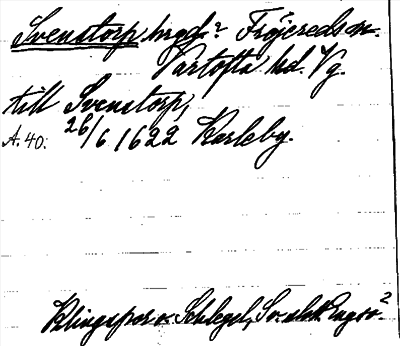 Svenstorp hrgd? Fröjereds sn.
Vartofta hd. Vg.
till Svenstorp,
A. 40. 26/6 1622 Karleby.
Klingspor o. Schlegel, Sv. slott